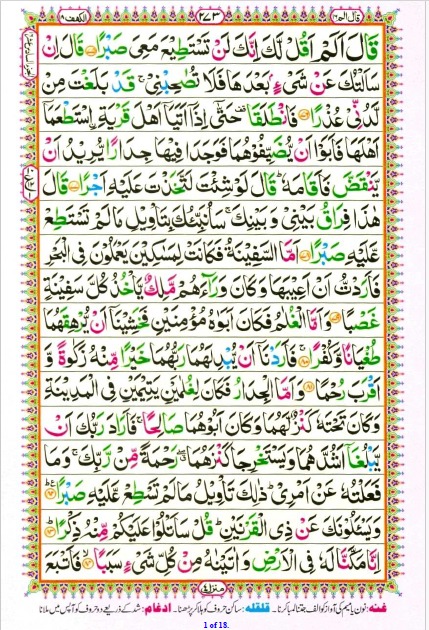 الكهف ١٨
٢٧٣
قال الم ١٦
قَالَ اَلَمْ اَقُلْ لَّكَ اِنَّكَ لَنْ تَسْتَطِيْعَ مَعِىَ صَبْرًا ۝ قَالَ اِنْ
سَاَلْتُكَ عَنْ شَىْءٍۭ بَعْدَهَا فَلَا تُصٰحِبْنِىْ ۚ قَدْ بَلَغْتَ مِنْ
لَّدُنِّىْ عُذْرًا ۝ فَانْطَلَقَا ۥ حَتّٰٓى اِذَآ اَتَيَآ اَهْلَ قَرْيَةِ ِۨاسْتَطْعَمَآ
اَهْلَهَا فَاَبَوْا اَنْ يُّضَيِّفُوْهُمَا فَوَجَدَا فِيْهَا جِدَارًا يُّرِيْدُ اَنْ
يَّنْقَضَّ فَاَقَامَهٗ ؕ قَالَ لَوْ شِئْتَ لَتَّخَذْتَ عَلَيْهِ اَجْرًا ۝ قَالَ
هٰذَا فِرَاقُ بَيْنِىْ وَبَيْنِكَ ۚ سَاُنَبِّئُكَ بِتَاْوِيْلِ مَا لَمْ تَسْتَطِعْ
عَّلَيْهِ صَبْرًا ۝ اَمَّا السَّفِيْنَةُ فَكَانَتْ لِمَسٰكِيْنَ يَعْمَلُوْنَ فِى الْبَحْرِ
فَاَرَدْتُّ اَنْ اَعِيْبَهَا وَكَانَ وَرَآءَهُمْ مَّلِكٌ يَّاْخُذُ كُلَّ سَفِيْنَةٍ
غَصْبًا ۝ وَاَمَّا الْغُلٰمُ فَكَانَ اَبَوٰهُ مُؤْمِنَيْنِ فَخَشِيْنَآ اَنْ يُّرْهِقَهُمَا
طُغْيَانًا وَّكُفْرًا ۝ فَاَرَدْنَآ اَنْ يُّبْدِلَهُمَا رَبُّهُمَا خَيْرًا مِّنْهُ زَكٰوةً وَّ
اَقْرَبَ رُحْمًا ۝ وَاَمَّا الْجِدَارُ فَكَانَ لِغُلٰمَيْنِ يَتِيْمَيْنِ فِى الْمَدِيْنَةِ
وَكَانَ تَحْتَهٗ كَنْزٌ لَّهُمَا وَكَانَ اَبُوْهُمَا صَالِحًا ۚ فَاَرَادَ رَبُّكَ اَنْ
يَّبْلُغَآ اَشُدَّهُمَا وَيَسْتَخْرِجَا كَنْزَهُمَا ۖ رَحْمَةً مِّنْ رَّبِّكَ ۚ وَمَا
فَعَلْتُهٗ عَنْ اَمْرِىْ ؕ ذٰلِكَ تَاْوِيْلُ مَا لَمْ تَسْطِعْ عَّلَيْهِ صَبْرًا ۝
وَيَسْـَٔلُوْنَكَ عَنْ ذِى الْقَرْنَيْنِ ؕ قُلْ سَاَتْلُوْا عَلَيْكُمْ مِّنْهُ ذِكْرًا ۝
اِنَّا مَكَّنَّا لَهٗ فِى الْاَرْضِ وَاٰتَيْنٰهُ مِنْ كُلِّ شَىْءٍ سَبَبًا ۝ فَاَتْبَعَ
منزل ٤
غنه: نون یا میم کی آواز کو الف جتنا لمبا کرنا۔ قلقله: ساکن حروف کو ہلا کر پڑھنا۔ ادغام: شد کے ذریعے دو حروف کو آپس میں ملانا
1 of 18.